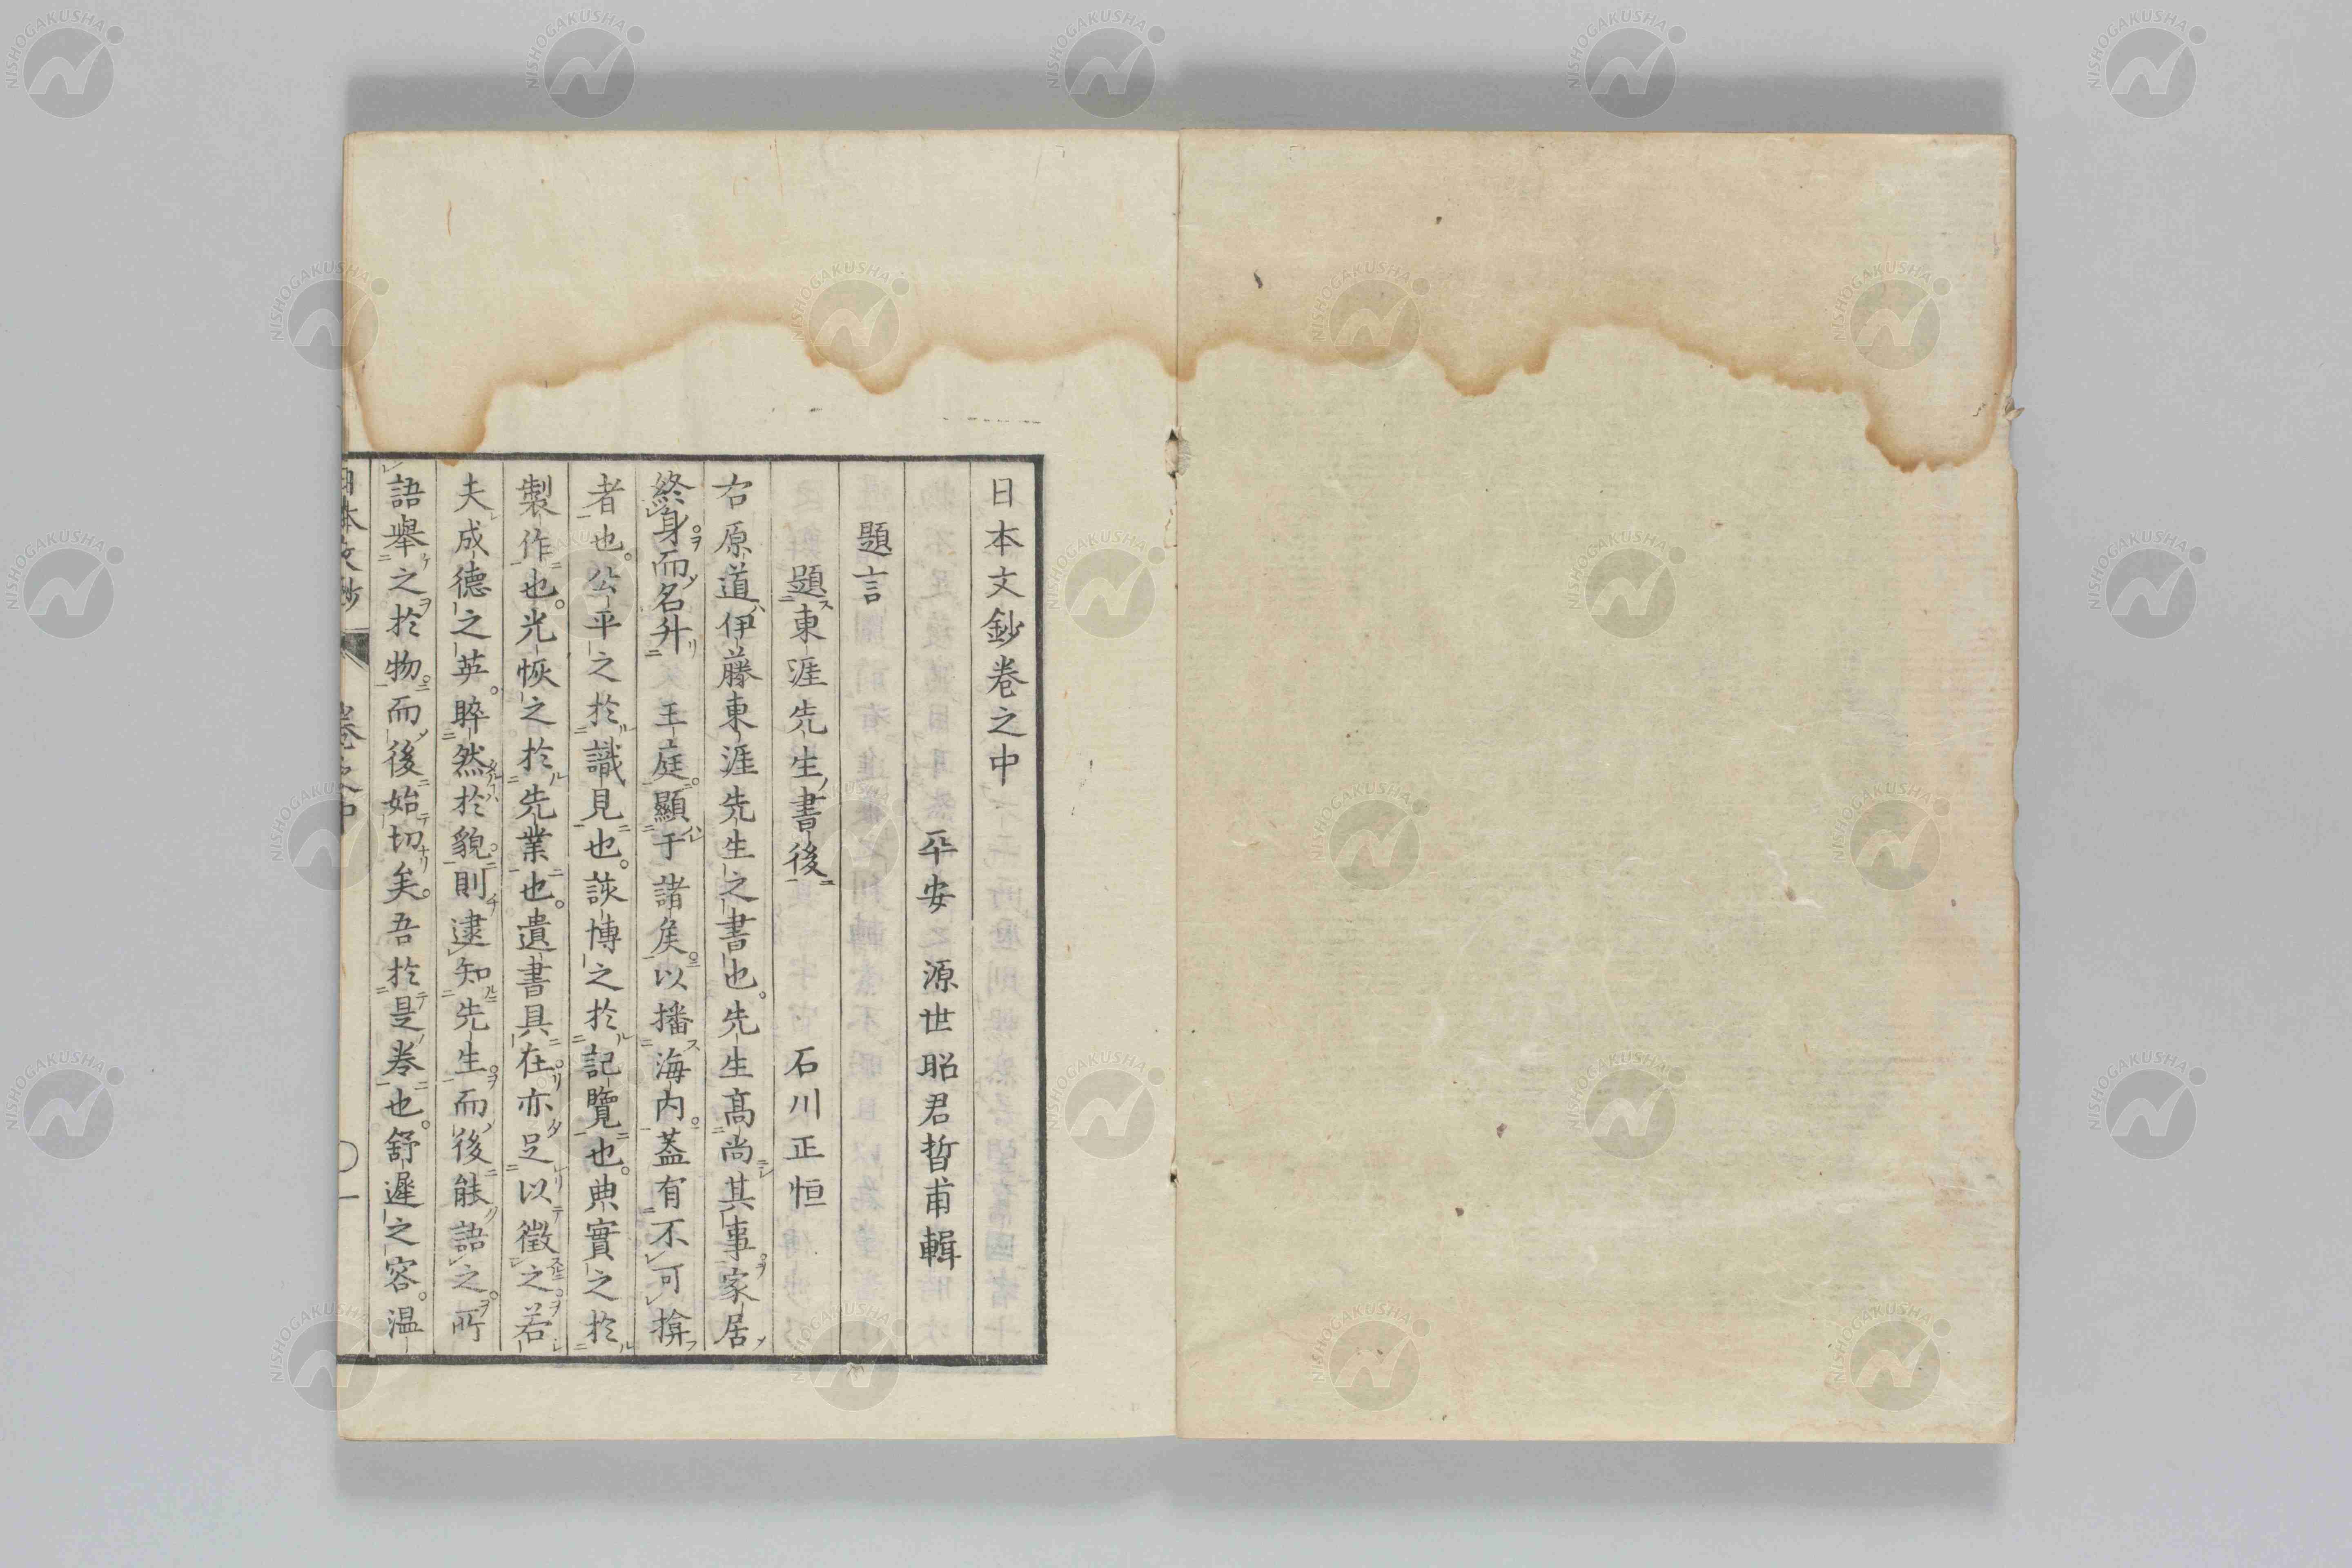 日本文鈔卷之中
平安 源世昭君晢甫輯
題言
題東涯先生書後 石川正恒
右原道伊藤東涯先生之書也。先生髙尚其事。家居
終身。而名升王庭。顯于諸矦。以播海内。蓋有不可揜
者也。公平之於識見也。該博之於記覽也。典實之於
製作也。光恢之於先業也。遺書具在。亦足以徵之。若
夫成德之英。睟然於貌。則逮知先生。而後能語之。所
語舉之於物。而後始切矣。吾於是巻也。舒遲之容。温
日本文鈔 卷之中 〇一
NISHOGAKUSHA